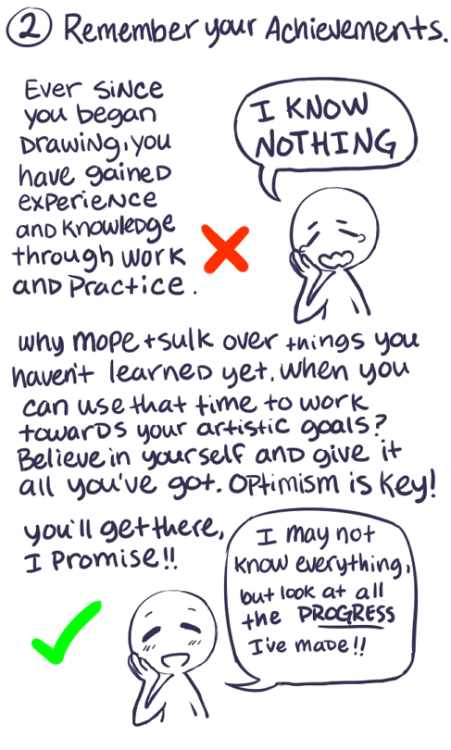 ② Remember your Achievements.
Ever since
you began
drawing, you
have gained
experience
and knowledge
through work
and practice.
I KNOW
NOTHING
why mope + sulk over things you
haven't learned yet, when you
can use that time to work
towards your artistic goals?
Believe in yourself and give it
all you've got. Optimism is key!
you'll get there,
I promise!!
I may not
know everything,
but look at all
the PROGRESS
I've made!!